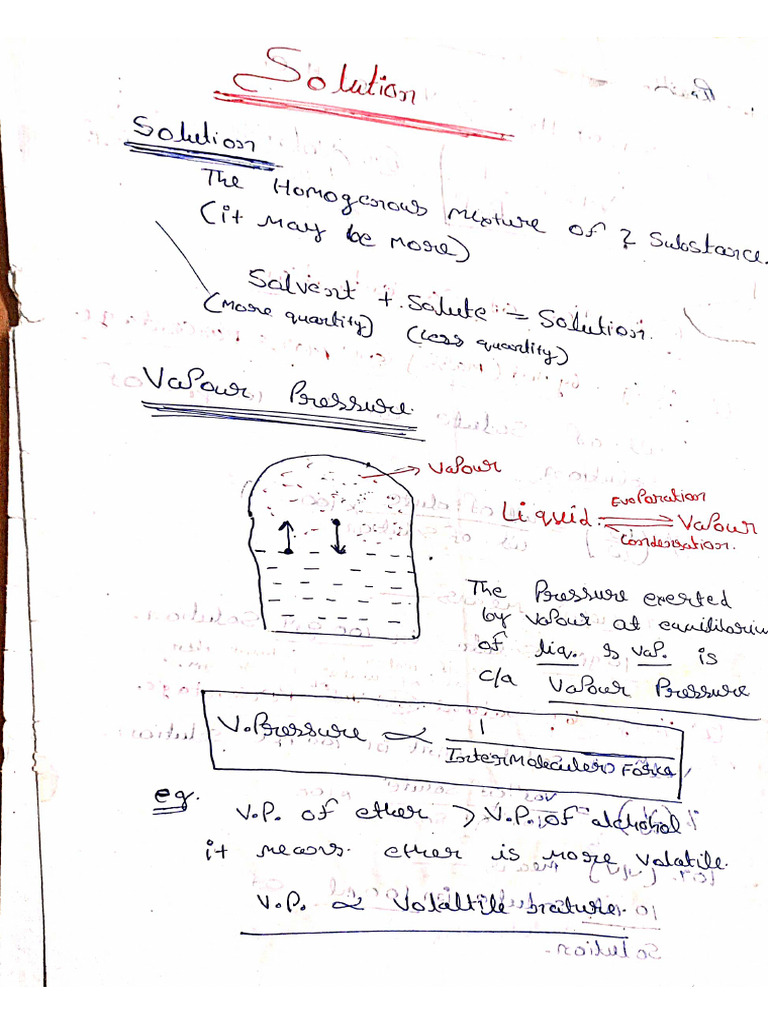 Solution
Solution
The Homogenous mixture of 2 Substance.
(it may be more)
Salvent + Salute = Solution.
(More quantity) (Less quantity)
Vapour Pressure
Vapour
Evaporation
Liquid Vapour
Condensation.
The Pressure exerted
by vapour at equilibrium
of liq. & vap. is
c/a Vapour Pressure
V.Pressure ∝ 1
InterMolecular Force
eg. V.P. of ether > V.P. of alcohol
it means ether is more volatile.
V.P. ∝ Volatile nature.
Solution